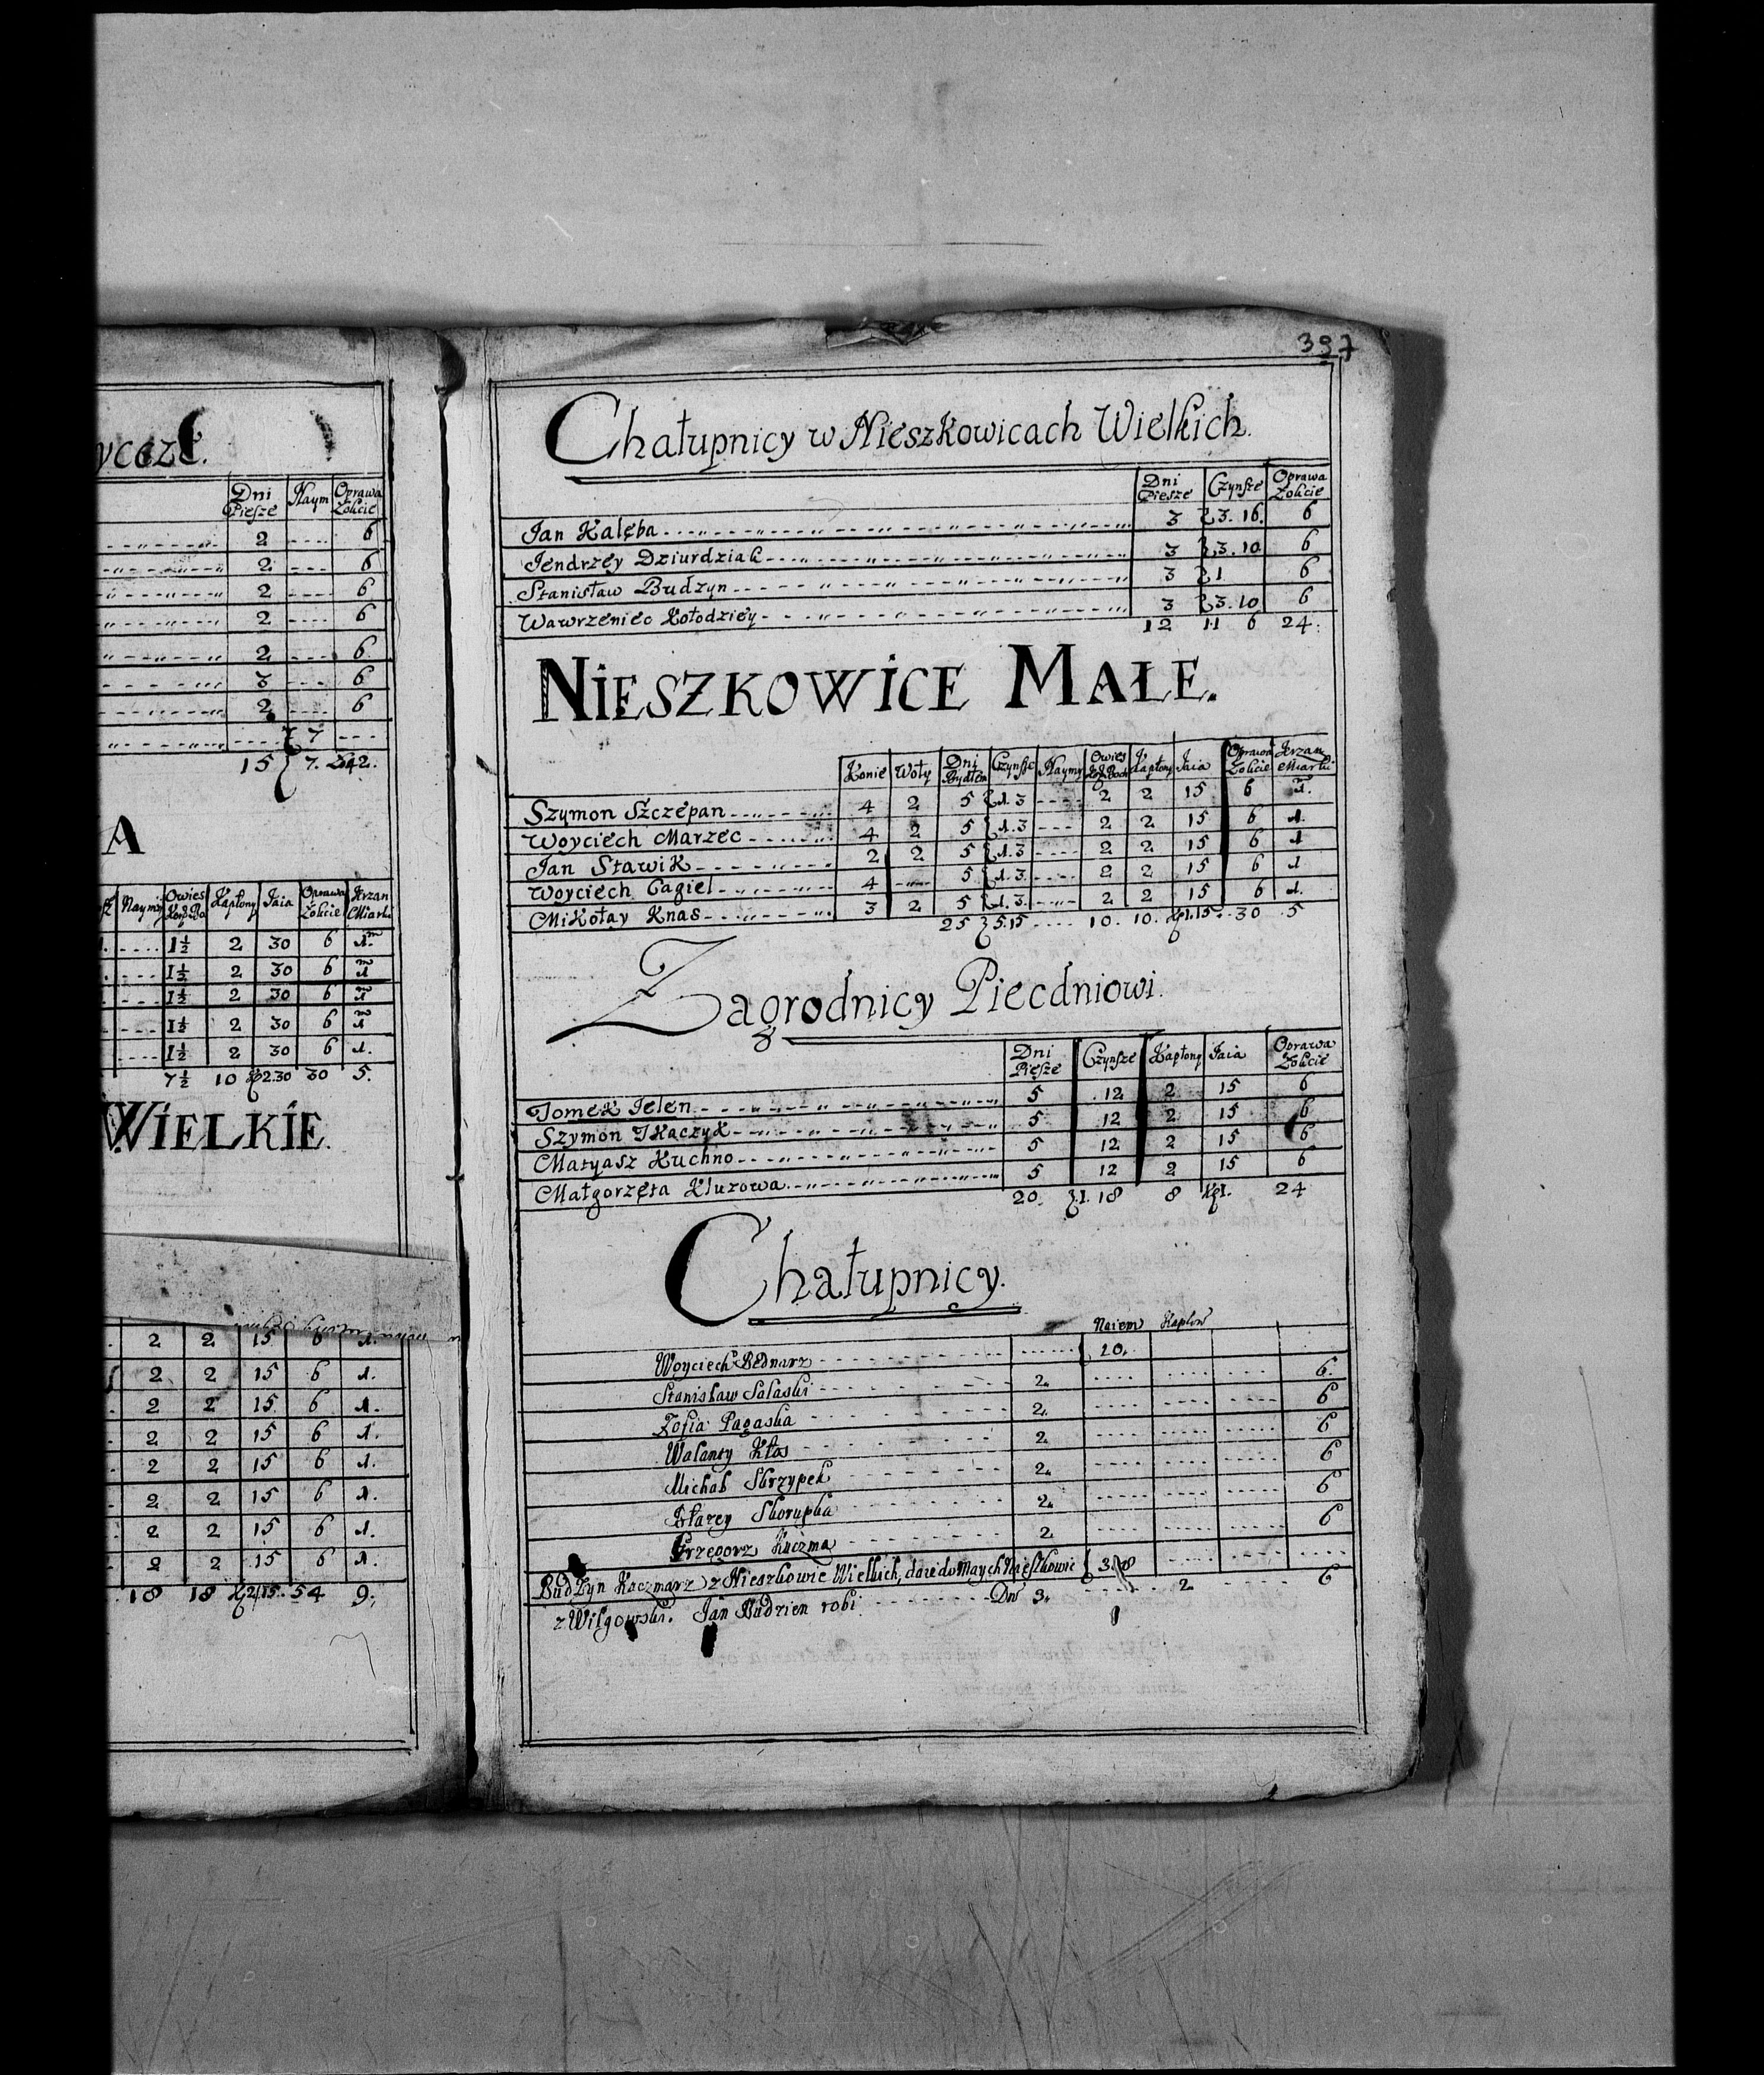 yceze.
Dni Piesze Naym Oprawa Łokcie
2 6
2 6
2 6
2 6
2 6
3 6
2 6
7
15 7. 42.
A
Naymy Owies Kapłony Iaia Oprawa Łokcie Jerzan Miarki
1½ 2 30 6 1.m
1½ 2 30 6 1 m
1½ 2 30 6 1 m
1½ 2 30 6 1 m
1½ 2 30 6 1.
7½ 10 2.30 30 5.
WIELKIE.
2 2 15 6 1.
2 2 15 6 1.
2 2 15 6 1.
2 2 15 6 1.
2 2 15 6 1.
2 2 15 6 1.
2 2 15 6 1.
2 2 15 6 1.
18 18 2.15. 54 9.
397
Chałupnicy w Nieszkowicach Wielkich.
Dni Piesze Czynsze Oprawa Łokcie
Jan Kalęba 3 3. 16. 6
Jendrzey Dziurdziak 3 3. 10 6
Stanisław Budzyn 3 1 6
Wawrzeniec Kołodziey 3 3. 10 6
12 11 6 24.
NIESZKOWICE MAŁE.
Konie Woły Dni Bydłem Czynsze Naymy Owies Kapłony Iaia Oprawa Łokcie Jerzan Miarki
Szymon Szczepan 4 2 5 1. 3 2 2 15 6 1. m
Woyciech Marzec 4 2 5 1. 3 2 2 15 6 1.
Jan Stawik 2 2 5 1. 3 2 2 15 6 1
Woyciech Cagiel 4 5 1. 3 2 2 15 6 1
Mikołay Knas 3 2 5 1. 3. 2 2 15 6 1.
25 5.15 10. 10. 1.15 30 5
Zagrodnicy Piecdniowi.
Dni Piesze Czynsze Kapłony Iaia Oprawa Łokcie
Tomek Jelen 5 12 2 15 6
Szymon Tkaczyk 5 12 2 15 6
Matyasz Kuchno 5 12 2 15 6
Małgorzęta Kluzowa 5 12 2 15 6
20. 1. 18 8 1. 24
Chałupnicy.
Naiem Kapłon
Woyciech Bednarz 20.
Stanisław Salaski 2. 6.
Zofia Pagaska 2. 6
Walanty Kłos 2 6
Michał Skrzypek 2. 6
Błazey Skorupka 2. 6
Grzegorz Kuczma 2 6
Budzyn Kaczmarz z Nieszkowic Wielkich, daie do Małych Nieszkowic 3.
z Wilgowski. Jan Budzien robi Dni 3. 2 6